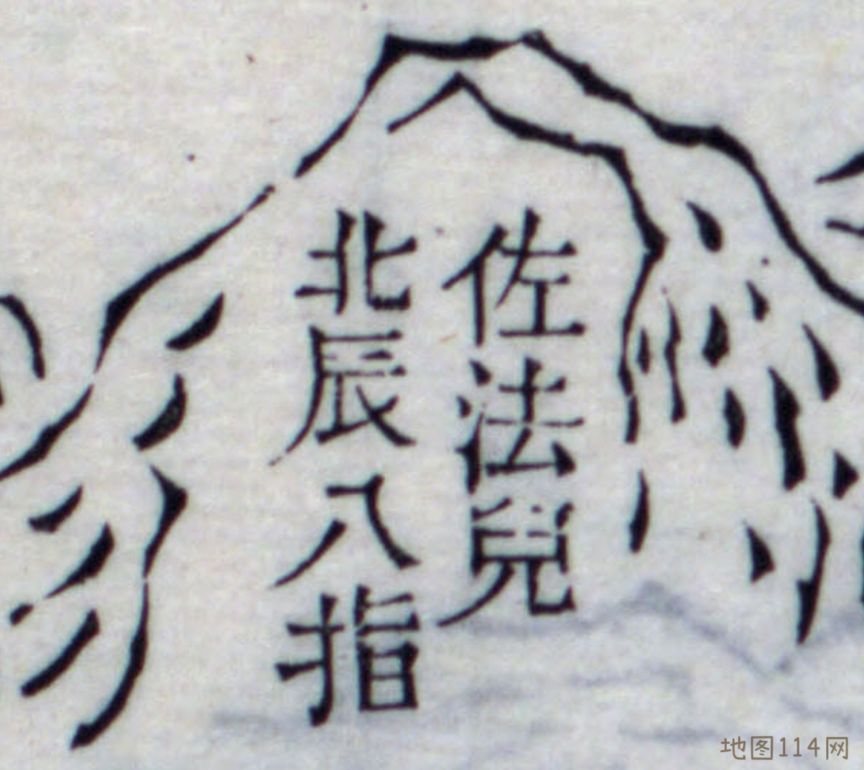 佐法兒
北辰八指
地图114网